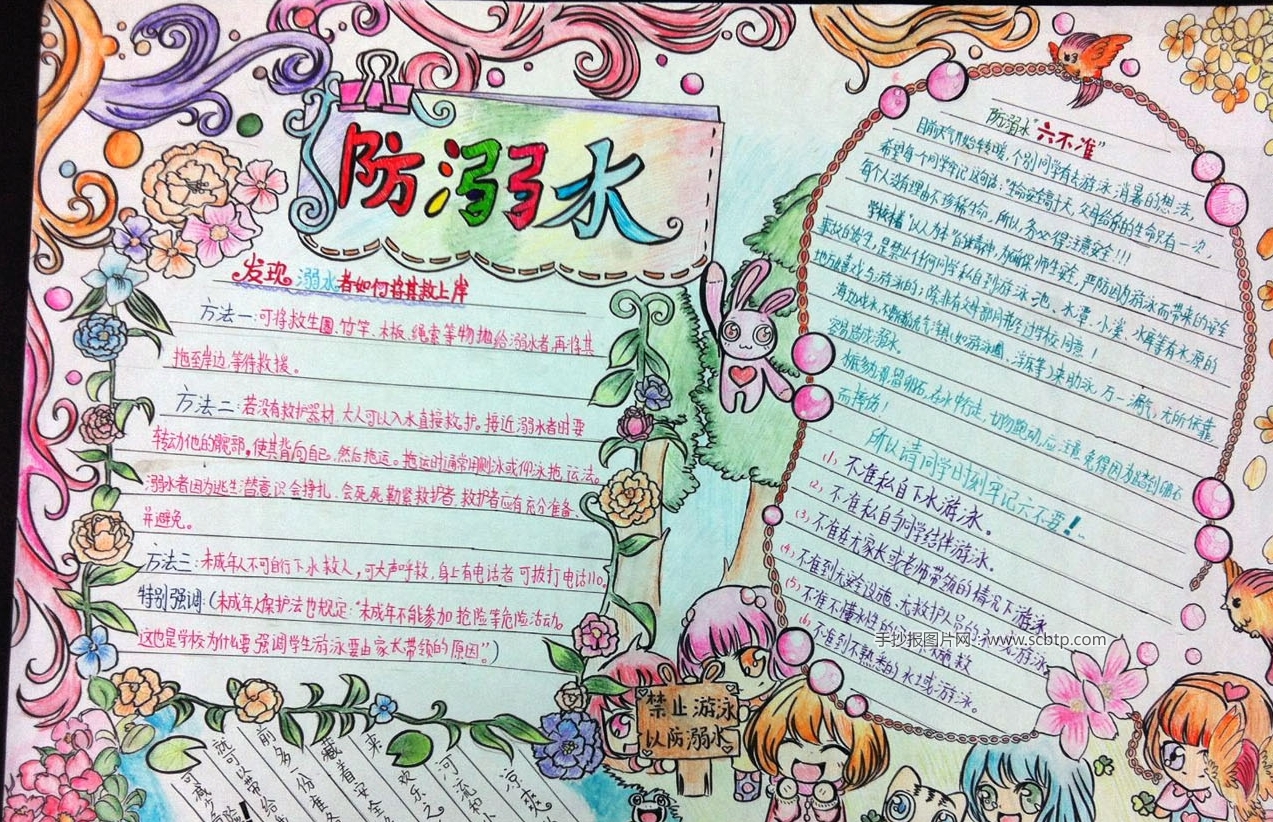 防溺水
发现溺水者如何将其救上岸
方法一:可将救生圈、竹竿、木板、绳索等物抛给溺水者,再将其
拖至岸边,等待救援。
方法二:若没有救护器材,大人可以入水直接救护。接近溺水者时要
转动他的髋部,使其背向自己,然后拖运。拖运时通常用侧泳或仰泳拖运法。
溺水者因为逃生潜意识会挣扎,会死死勒紧救护者,救护者应有充分准备,
并避免。
方法三:未成年人不可自行下水救人,可大声呼救,身上有电话者可拨打电话110。
特别强调:(未成年人保护法也规定:"未成年不能参加抢险等危险活动。
这也是学校为什么要强调学生游泳要由家长带领的原因"。)
防溺水"六不准"
目前天气开始转暖,个别同学有去游泳消暑的想法,
希望每个同学牢记这句话:"生命安全高于天,父母给你的生命只有一次,
每个人没有理由不珍稀生命,所以,务必得注意安全!!!
学校本着"以人为本"的精神,为确保师生安全,严防因为游泳而带来的安全
事故的发生,是禁止任何同学私自到游泳池、水潭、小溪、水库等有水源的
地方嬉戏与游泳的;除非有文件部门并经过学校同意!
海边戏水,不要依赖充气浮具(如游泳圈、浮床等)来助泳,万一漏气,无所依靠,
容易造成溺水
在水中行走,切勿跑动,应注意,免得因为踏到卵石
而摔伤!
所以请同学日刻牢记六不要!
(1)不准私自下水游泳。
(2)不准私自与同学结伴游泳。
(3)不准在无家长或老师带领的情况下游泳
(4)不准到无安全设施、无救护人员的水域游泳。
(5)不准不懂水性的
(6)不准到不熟悉的水域游泳。
手抄报图片网:www.scbtp.com
禁止游泳
以防溺水
凉爽
河流和
欢乐之
来
藏着安全
前多一份准备
就可以带给
可减少